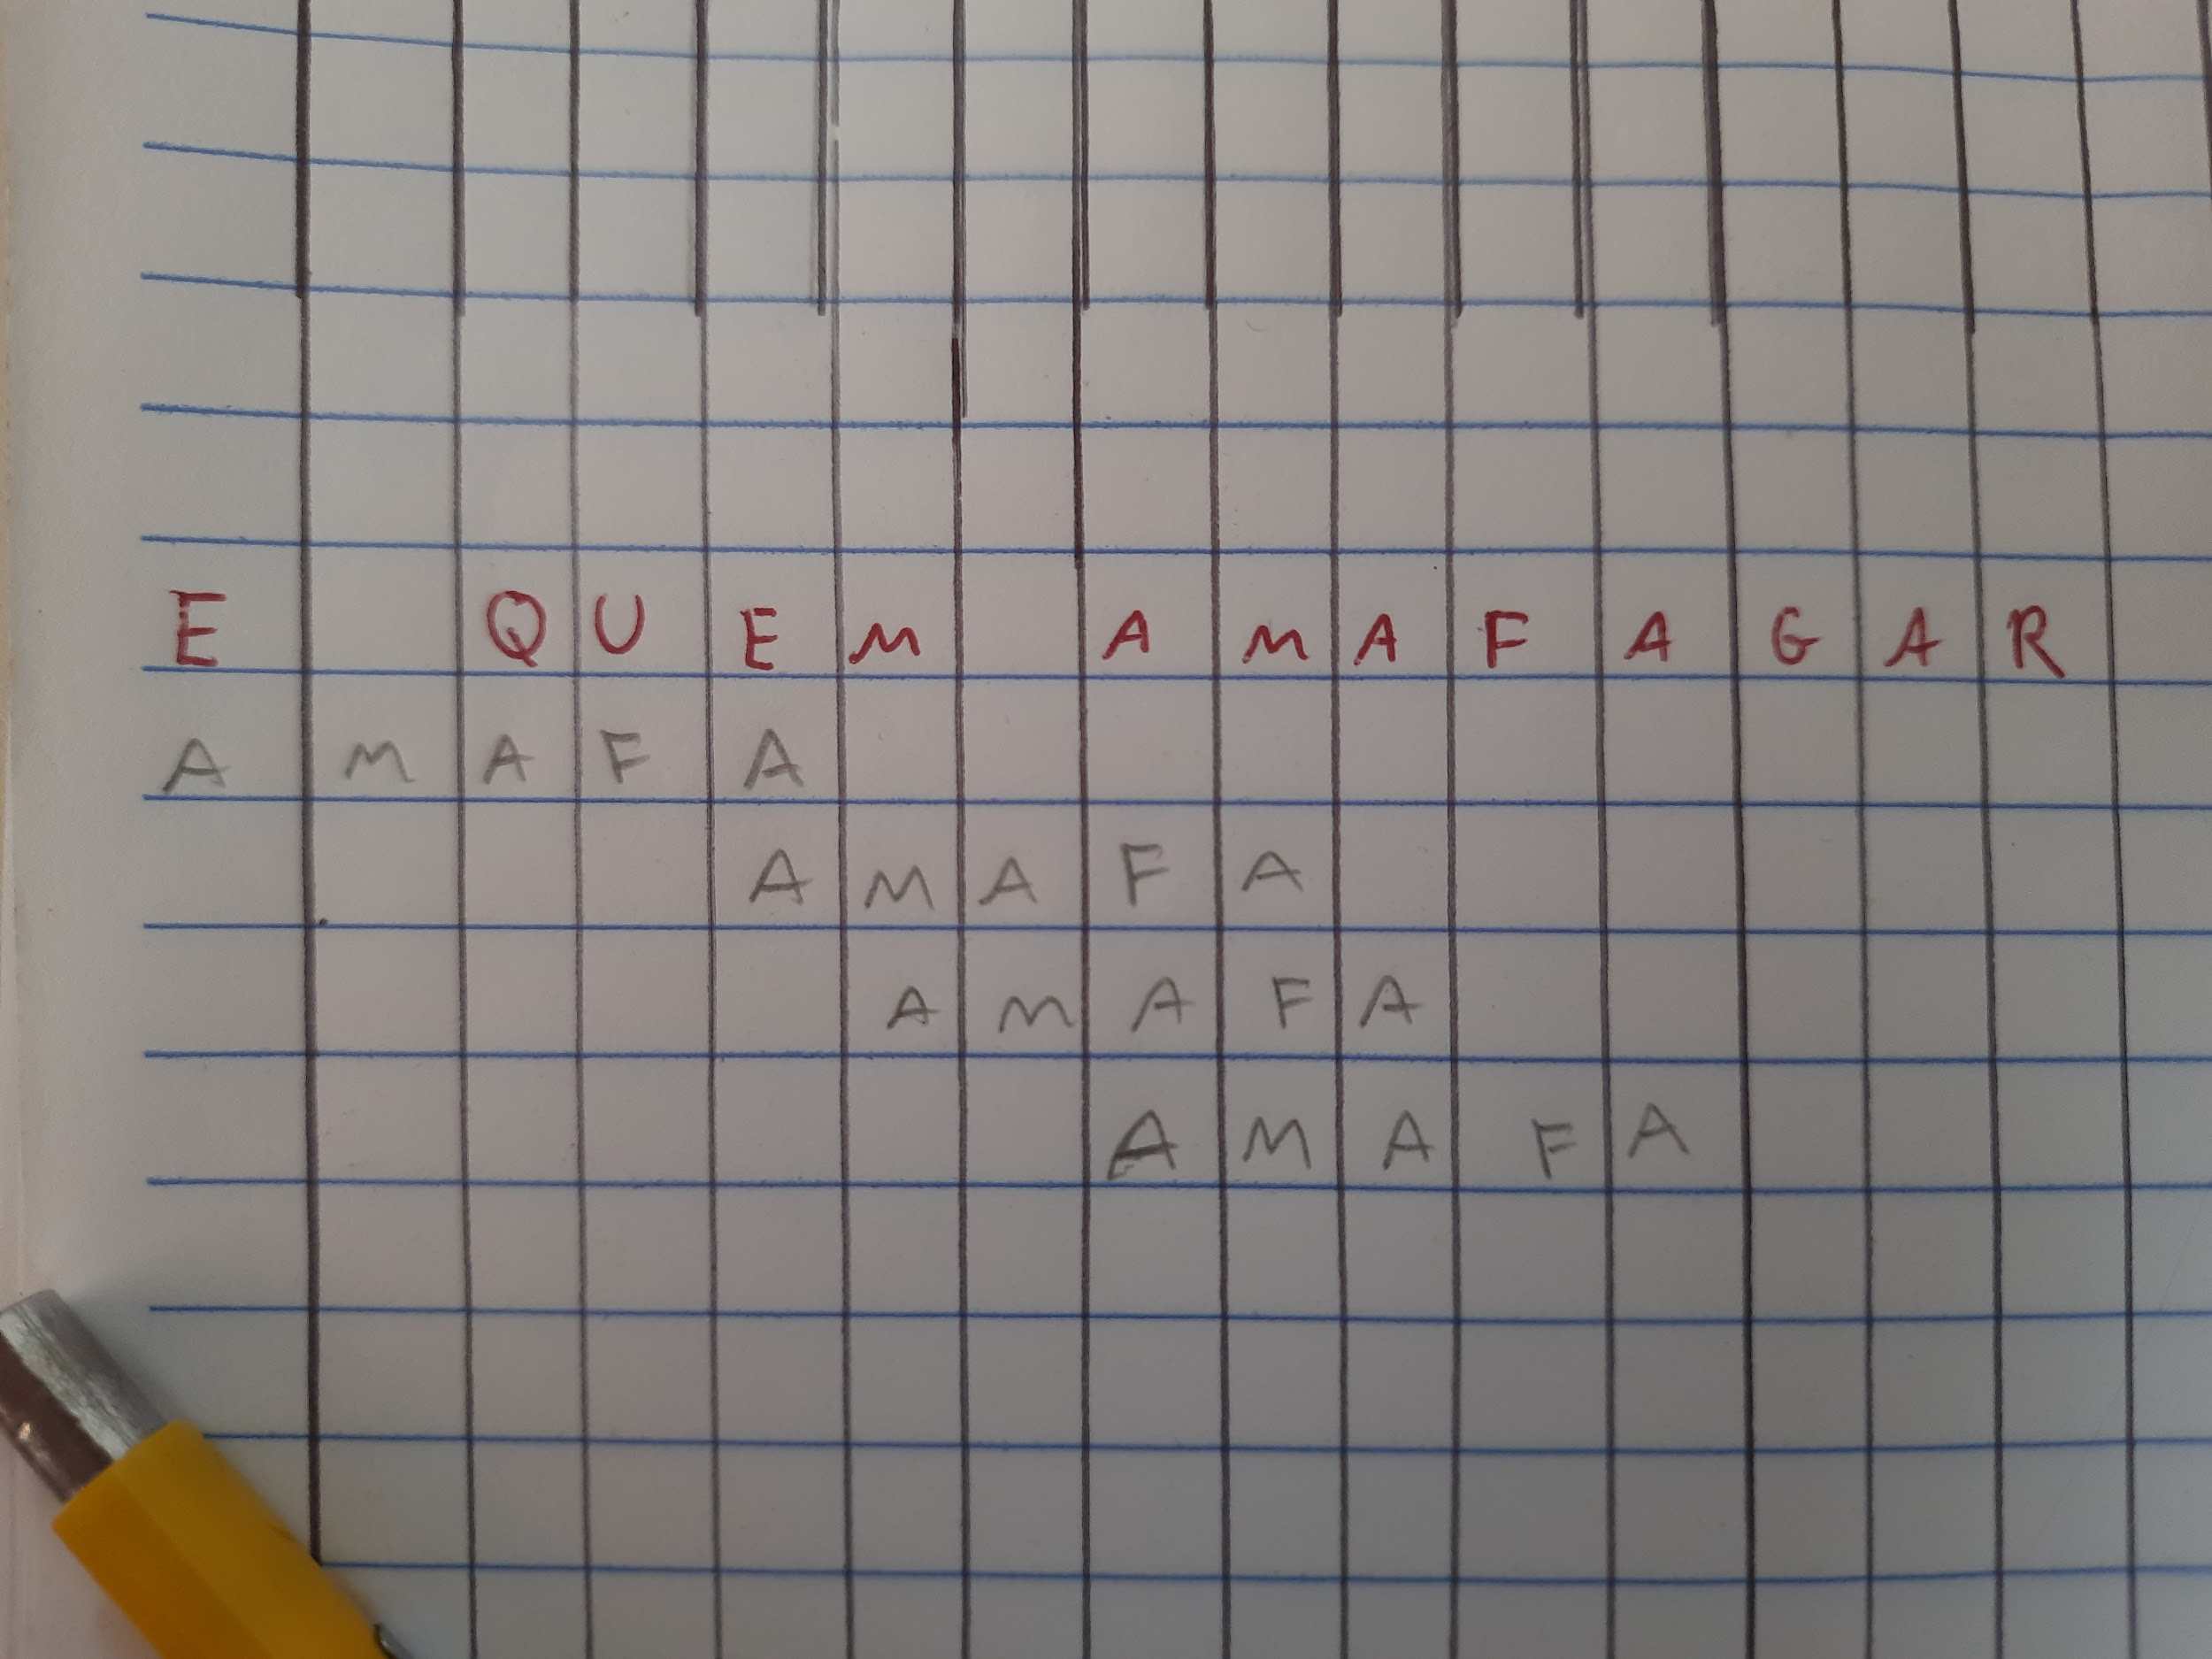 E QUEM AMAFAGAR
AMAFA
AMAFA
AMAFA
AMAFA